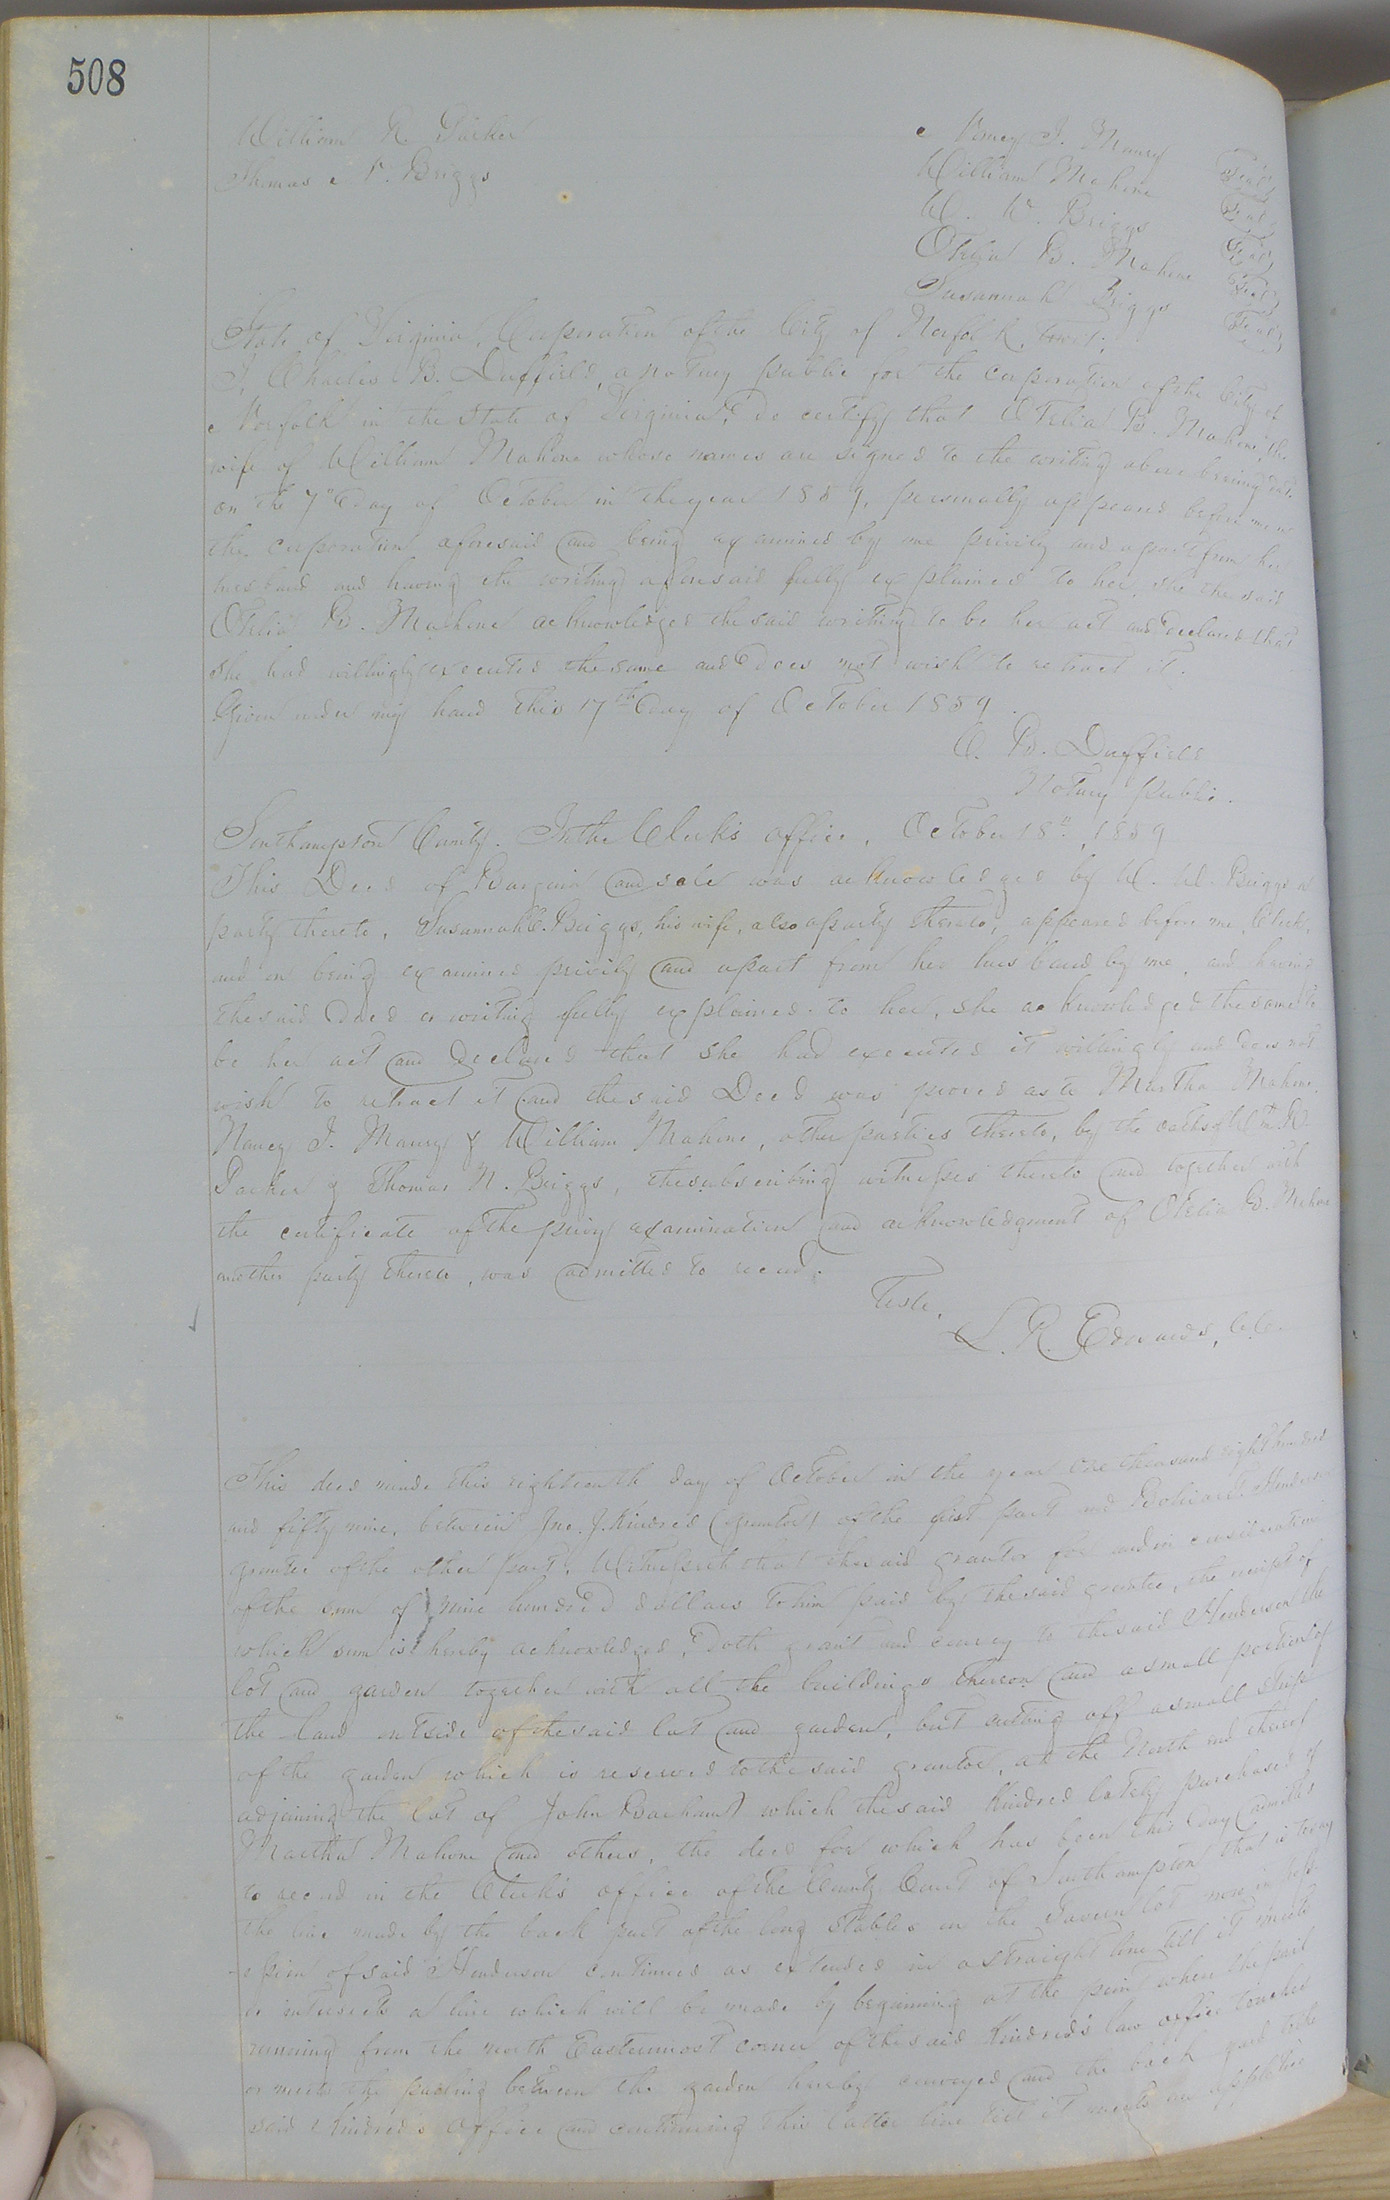 508
William R. Parker
Thomas N. Briggs
Nancy J. Maury Seal
William Mahone Seal
W. W. Briggs Seal
Otelia B. Mahone Seal
Susannah Briggs Seal
State of Virginia, Corporation of the City of Norfolk, towit:
I, Charles B. Duffield, a notary public for the corporation of the City of
Norfolk in the State of Virginia, do certify that Otelia B. Mahone, the
wife of William Mahone whose names are signed to the writing above bearing date
on the 7" day of October in the year 1859, personally appeared before me in
the corporation aforesaid and being examined by me privily and apart from her
husband and having the writing aforesaid fully explained to her, she the said
Otelia B. Mahone acknowledged the said writing to be her act and declared that
she had willingly executed the same and does not wish to retract it.
Given under my hand this 17th day of October 1859.
C. B. Duffield
Notary public.
Southampton County. In the Clerk's office, October 18", 1859
This Deed of Bargain and sale was acknowledged by W. W. Briggs a
party thereto, Susannah C. Briggs, his wife, also a party thereto, appeared before me, Clerk,
and on being examined privily and apart from her husband by me, and having
the said Deed or writing fully explained to her, she acknowledged the same to
be her act and declared that she had executed it willingly and does not
wish to retract it and the said Deed was proved as to Martha Mahone,
Nancy J. Maury & William Mahone, other parties thereto, by the oaths of Wm R.
Parker & Thomas N. Briggs, the subscribing witnesses thereto and together with
the certificate of the privy examination and acknowledgment of Otelia B. Mahone
another party thereto, was admitted to record.
Teste,
L. R. Edwards, C.C.
This deed made this eighteenth day of October in the year one thousand eight hundred
and fifty nine, between Jno. J. Kindred (grantor) of the first part and Henderson
grantee of the other part, Witnesseth that the said grantor for and in consideration
of the sum of nine hundred dollars to him paid by the said grantee, the receipt of
which sum is hereby acknowledged, doth grant and convey to the said Henderson the
lot and garden together with all the buildings thereon and a small portion of
the land outside of the said lot and garden, but cutting off a small strip
of the garden which is reserved to the said grantor, at the North end thereof
adjoining the lot of John Barham which the said Kindred lately purchased of
Martha Mahone and others, the deed for which has been this day admitted
to record in the Clerk's office of the County Court of Southampton that is to say
the line made by the back part of the long stables in the Tavern lot now in poss-
ession of said Henderson continued as extended in a straight line till it meets
or intersects a line which will be made by beginning at the point where the pail
running from the north Easternmost corner of the said Kindred's law office touches
or meets the paling between the garden hereby conveyed and the back yard to the
said Kindred's office and continuing this latter line till it meets